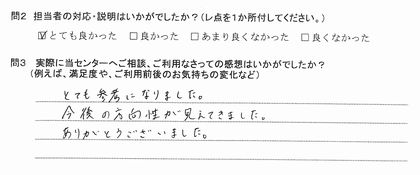 問2 担当者の対応・説明はいかがでしたか?(レ点を1か所付してください。)
☑とても良かった □良かった □あまり良くなかった □良くなかった
問3 実際に当センターへご相談、ご利用なさっての感想はいかがでしたか?
(例えば、満足度や、ご利用前後のお気持ちの変化など)
とても参考になりました。
今後の方向性が見えてきました。
ありがとうございました。